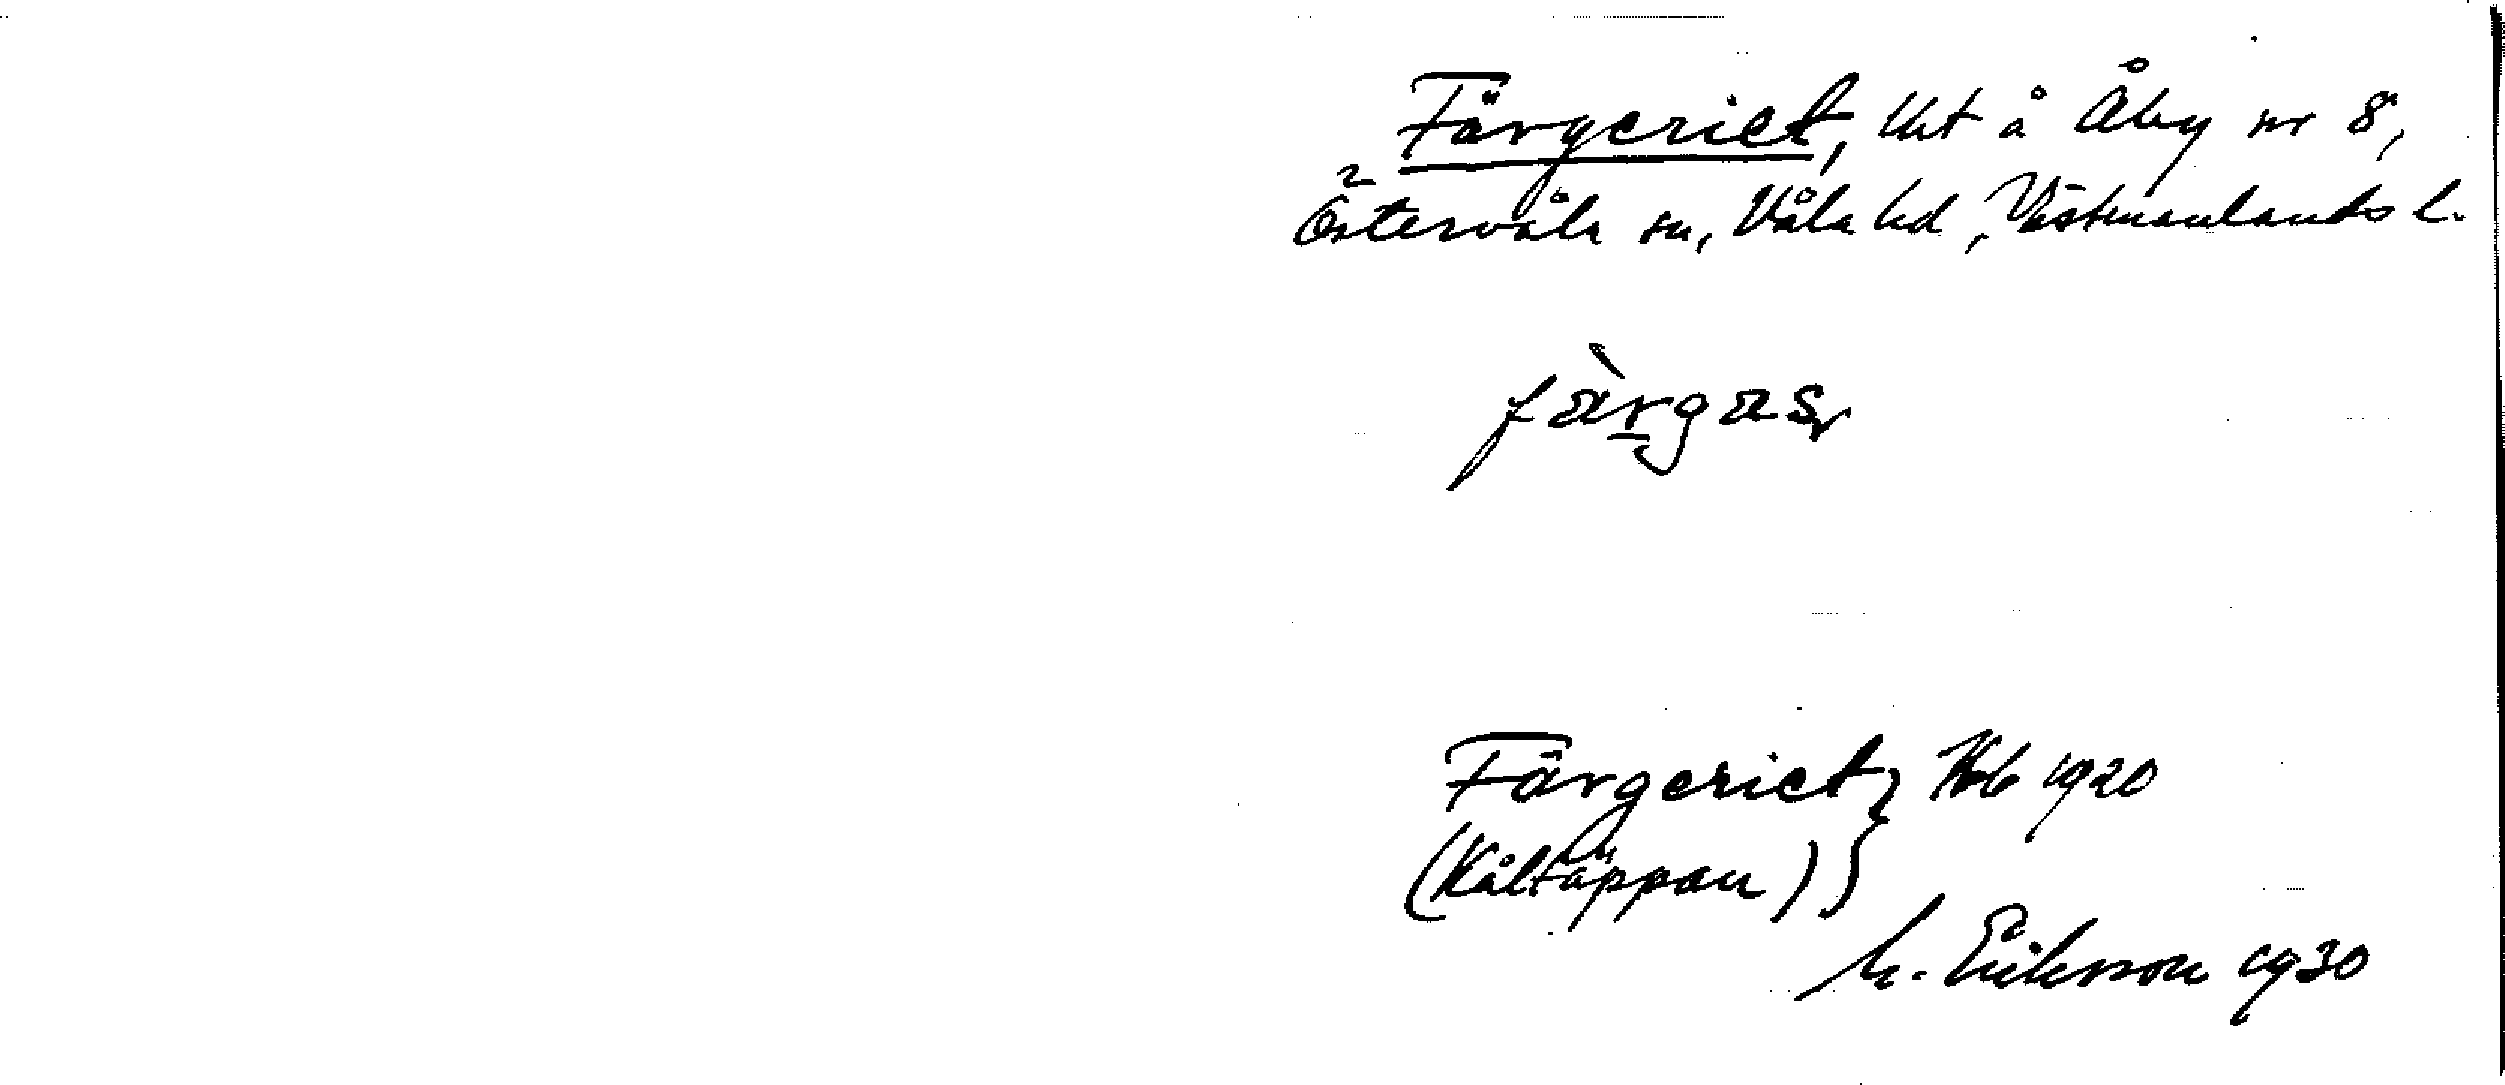 Färgeriet, lht å Åby nr 8,
Östervåla sn, Våla hd, Västmanlands l.
fàrgas
Färgeriet } Hb 1920
(Kåltäppan) }
M. Eriksson 1930